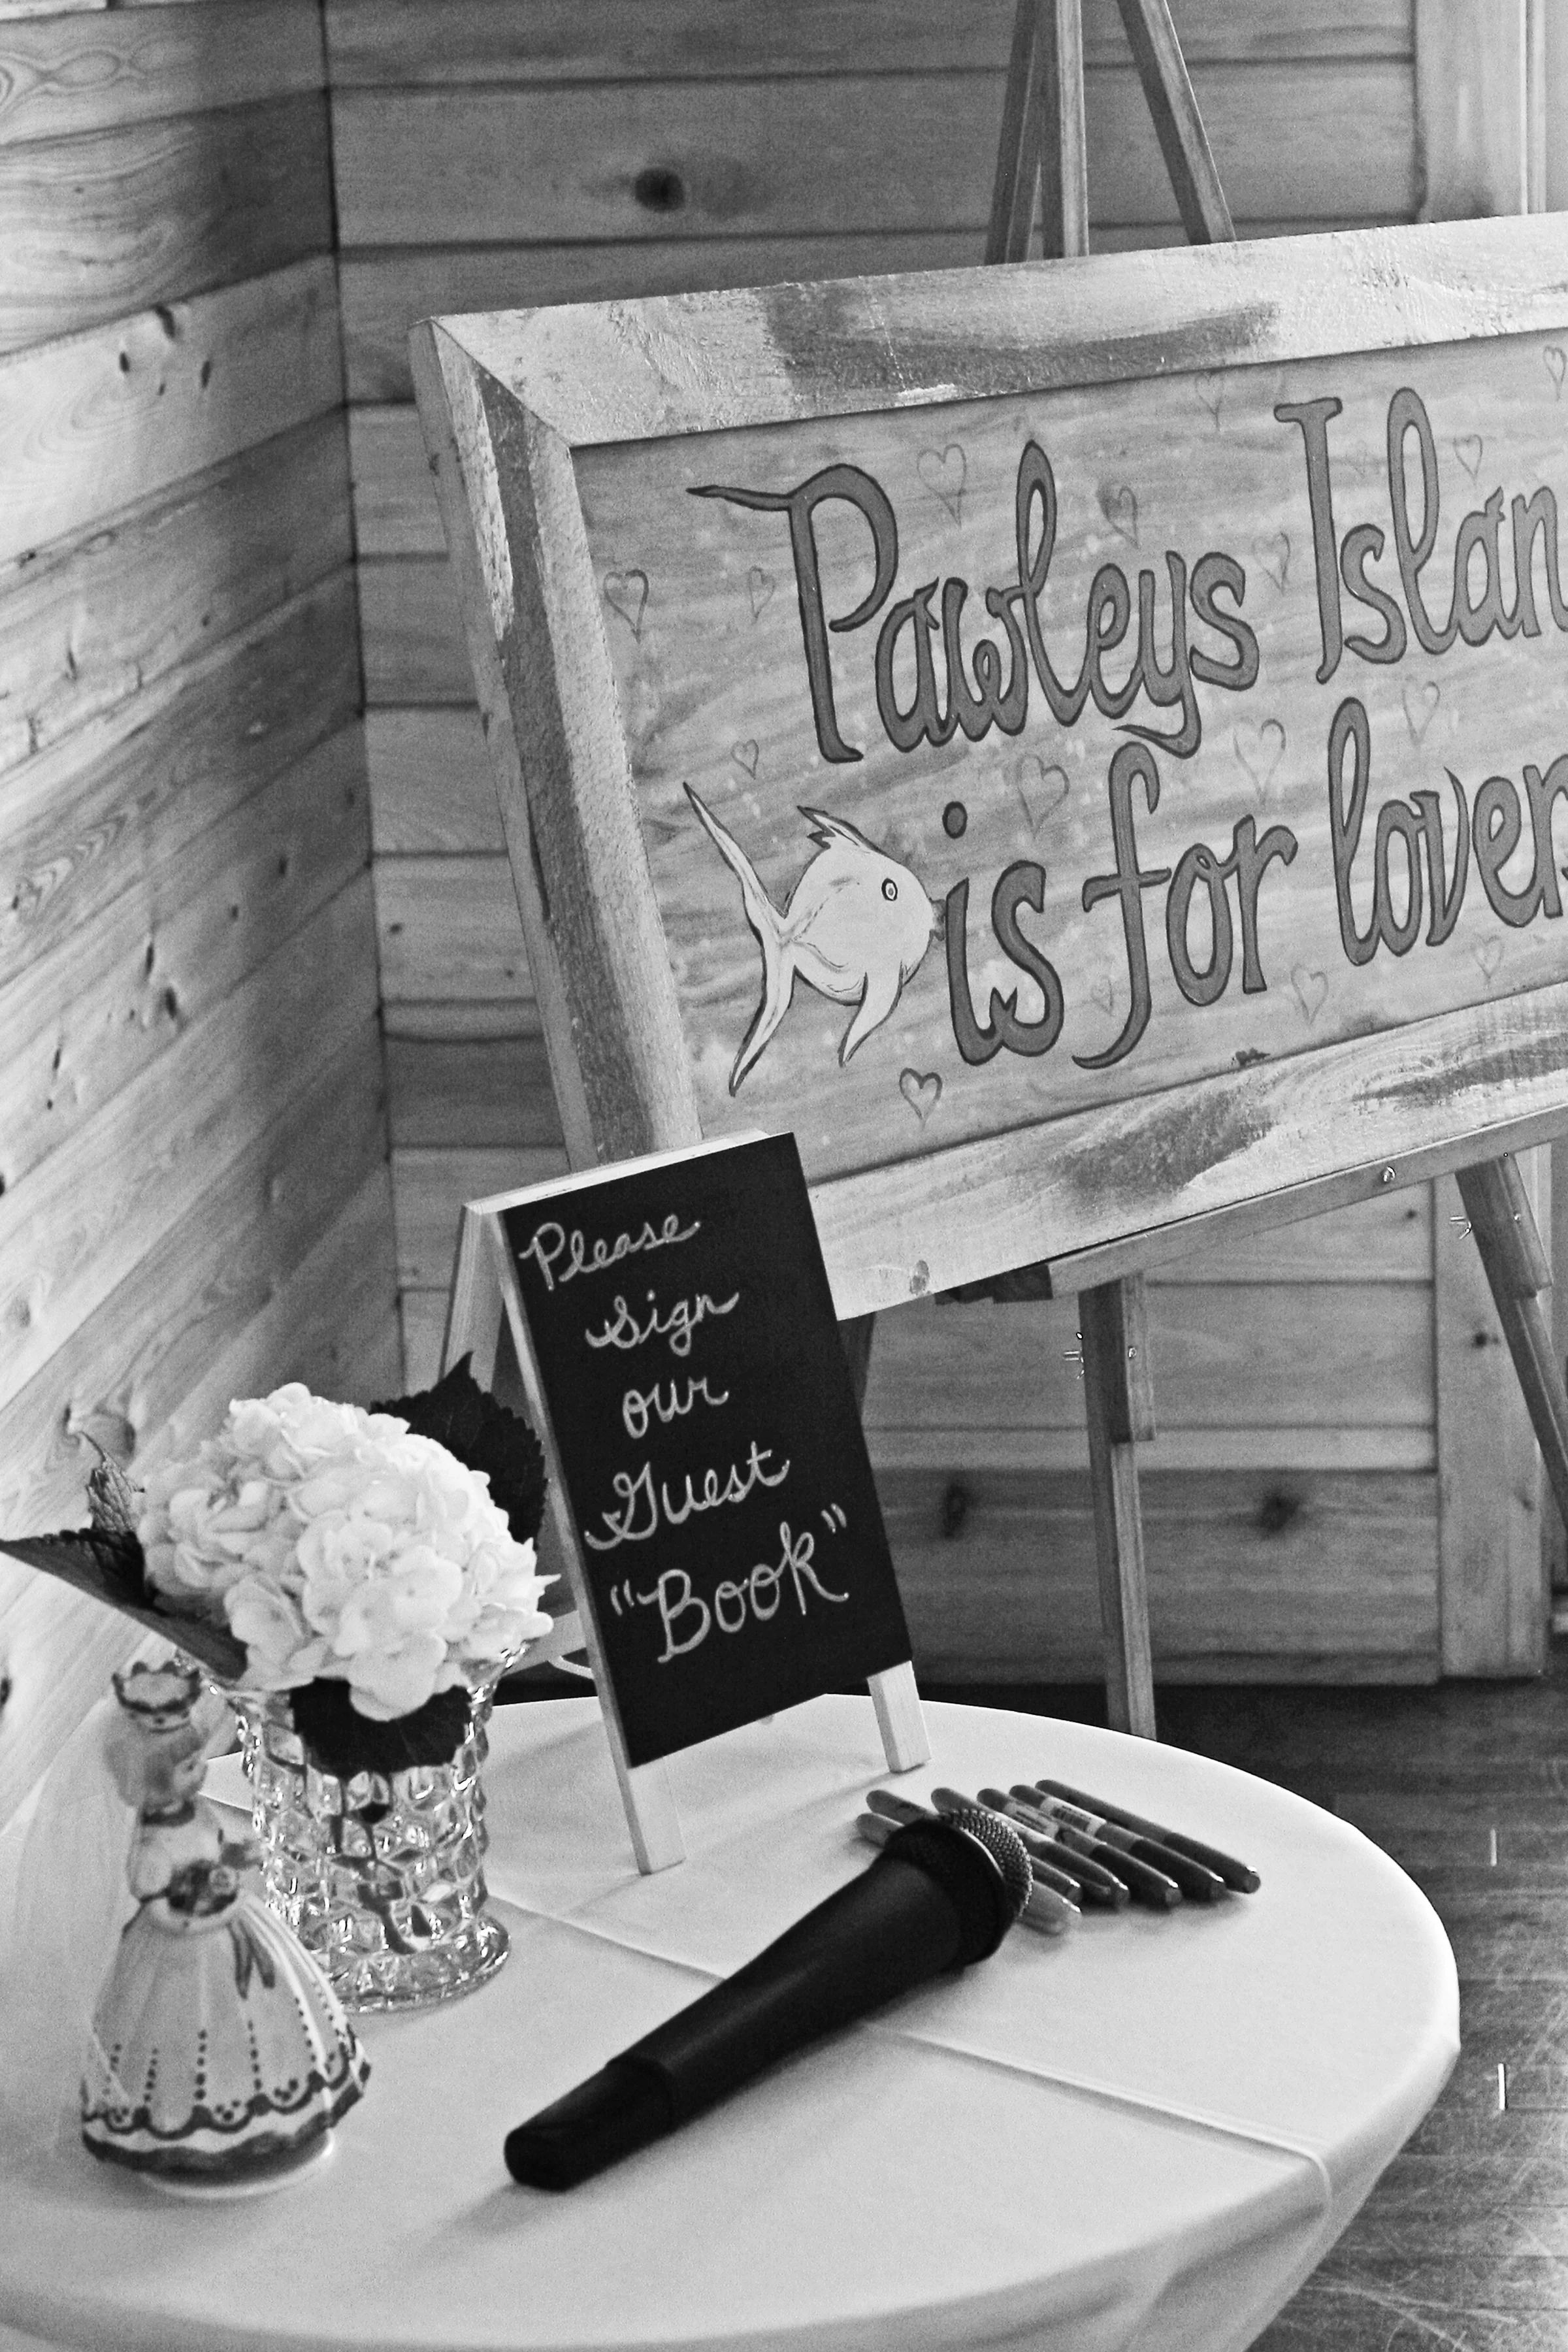 Pawleys Islan
is for lovers
Please
Sign
our
Guest
"Book"